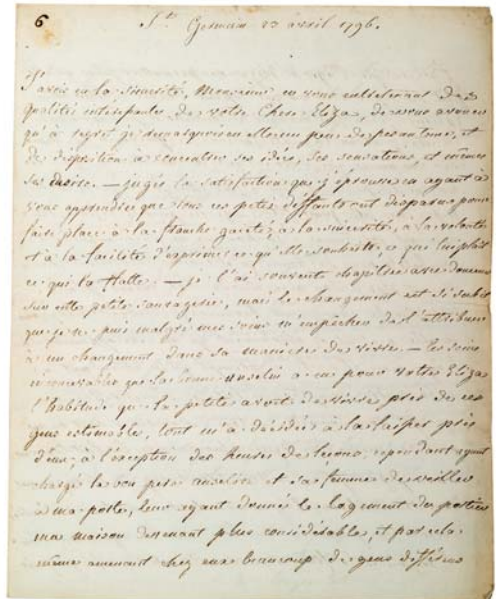 6
St Germain 23 avril 1796.
J'avois eu la sincerité, Monsieur en vous entretenant des
qualités intéressantes de votre Chere Eliza, de vous avouer
qu'à regret je remarquois en elle un peu de pesanteur, et
de disposition à concentrer ses idées, ses sensations, et mêmes
ses desirs. — jugés la satisfaction que j'éprouve en ayant à
vous apprendre que tous ces petits deffauts ont disparus pour
faire place à la franche gaité, à la sincerité, a la volonté
et à la facilité d'exprimer ce qu'elle souhaite, ce qui lui plait
ce qui la flatte. — je l'ai souvent chapitrée avec douceur
sur cette petite sauvagerie, mais le changement est si subit
que je ne puis malgré mes soins m'empêcher de l'attribuer
à un changement dans sa maniere de vivre. — les soins
que la bonne anselin a eu pour votre Eliza
l'habitude que la petite avoit de vivre près de ces
gens estimables, tout m'a décidée à la laisser près
d'eux, à l'exception des heures de leçons, cependant ayant
chargé le bon pere anselin et sa femme de veiller
à ma porte, leur ayant donnée le logement du portier
ma maison devenant plus considérable, et par cela
même amenant chez eux beaucoup de gens différens